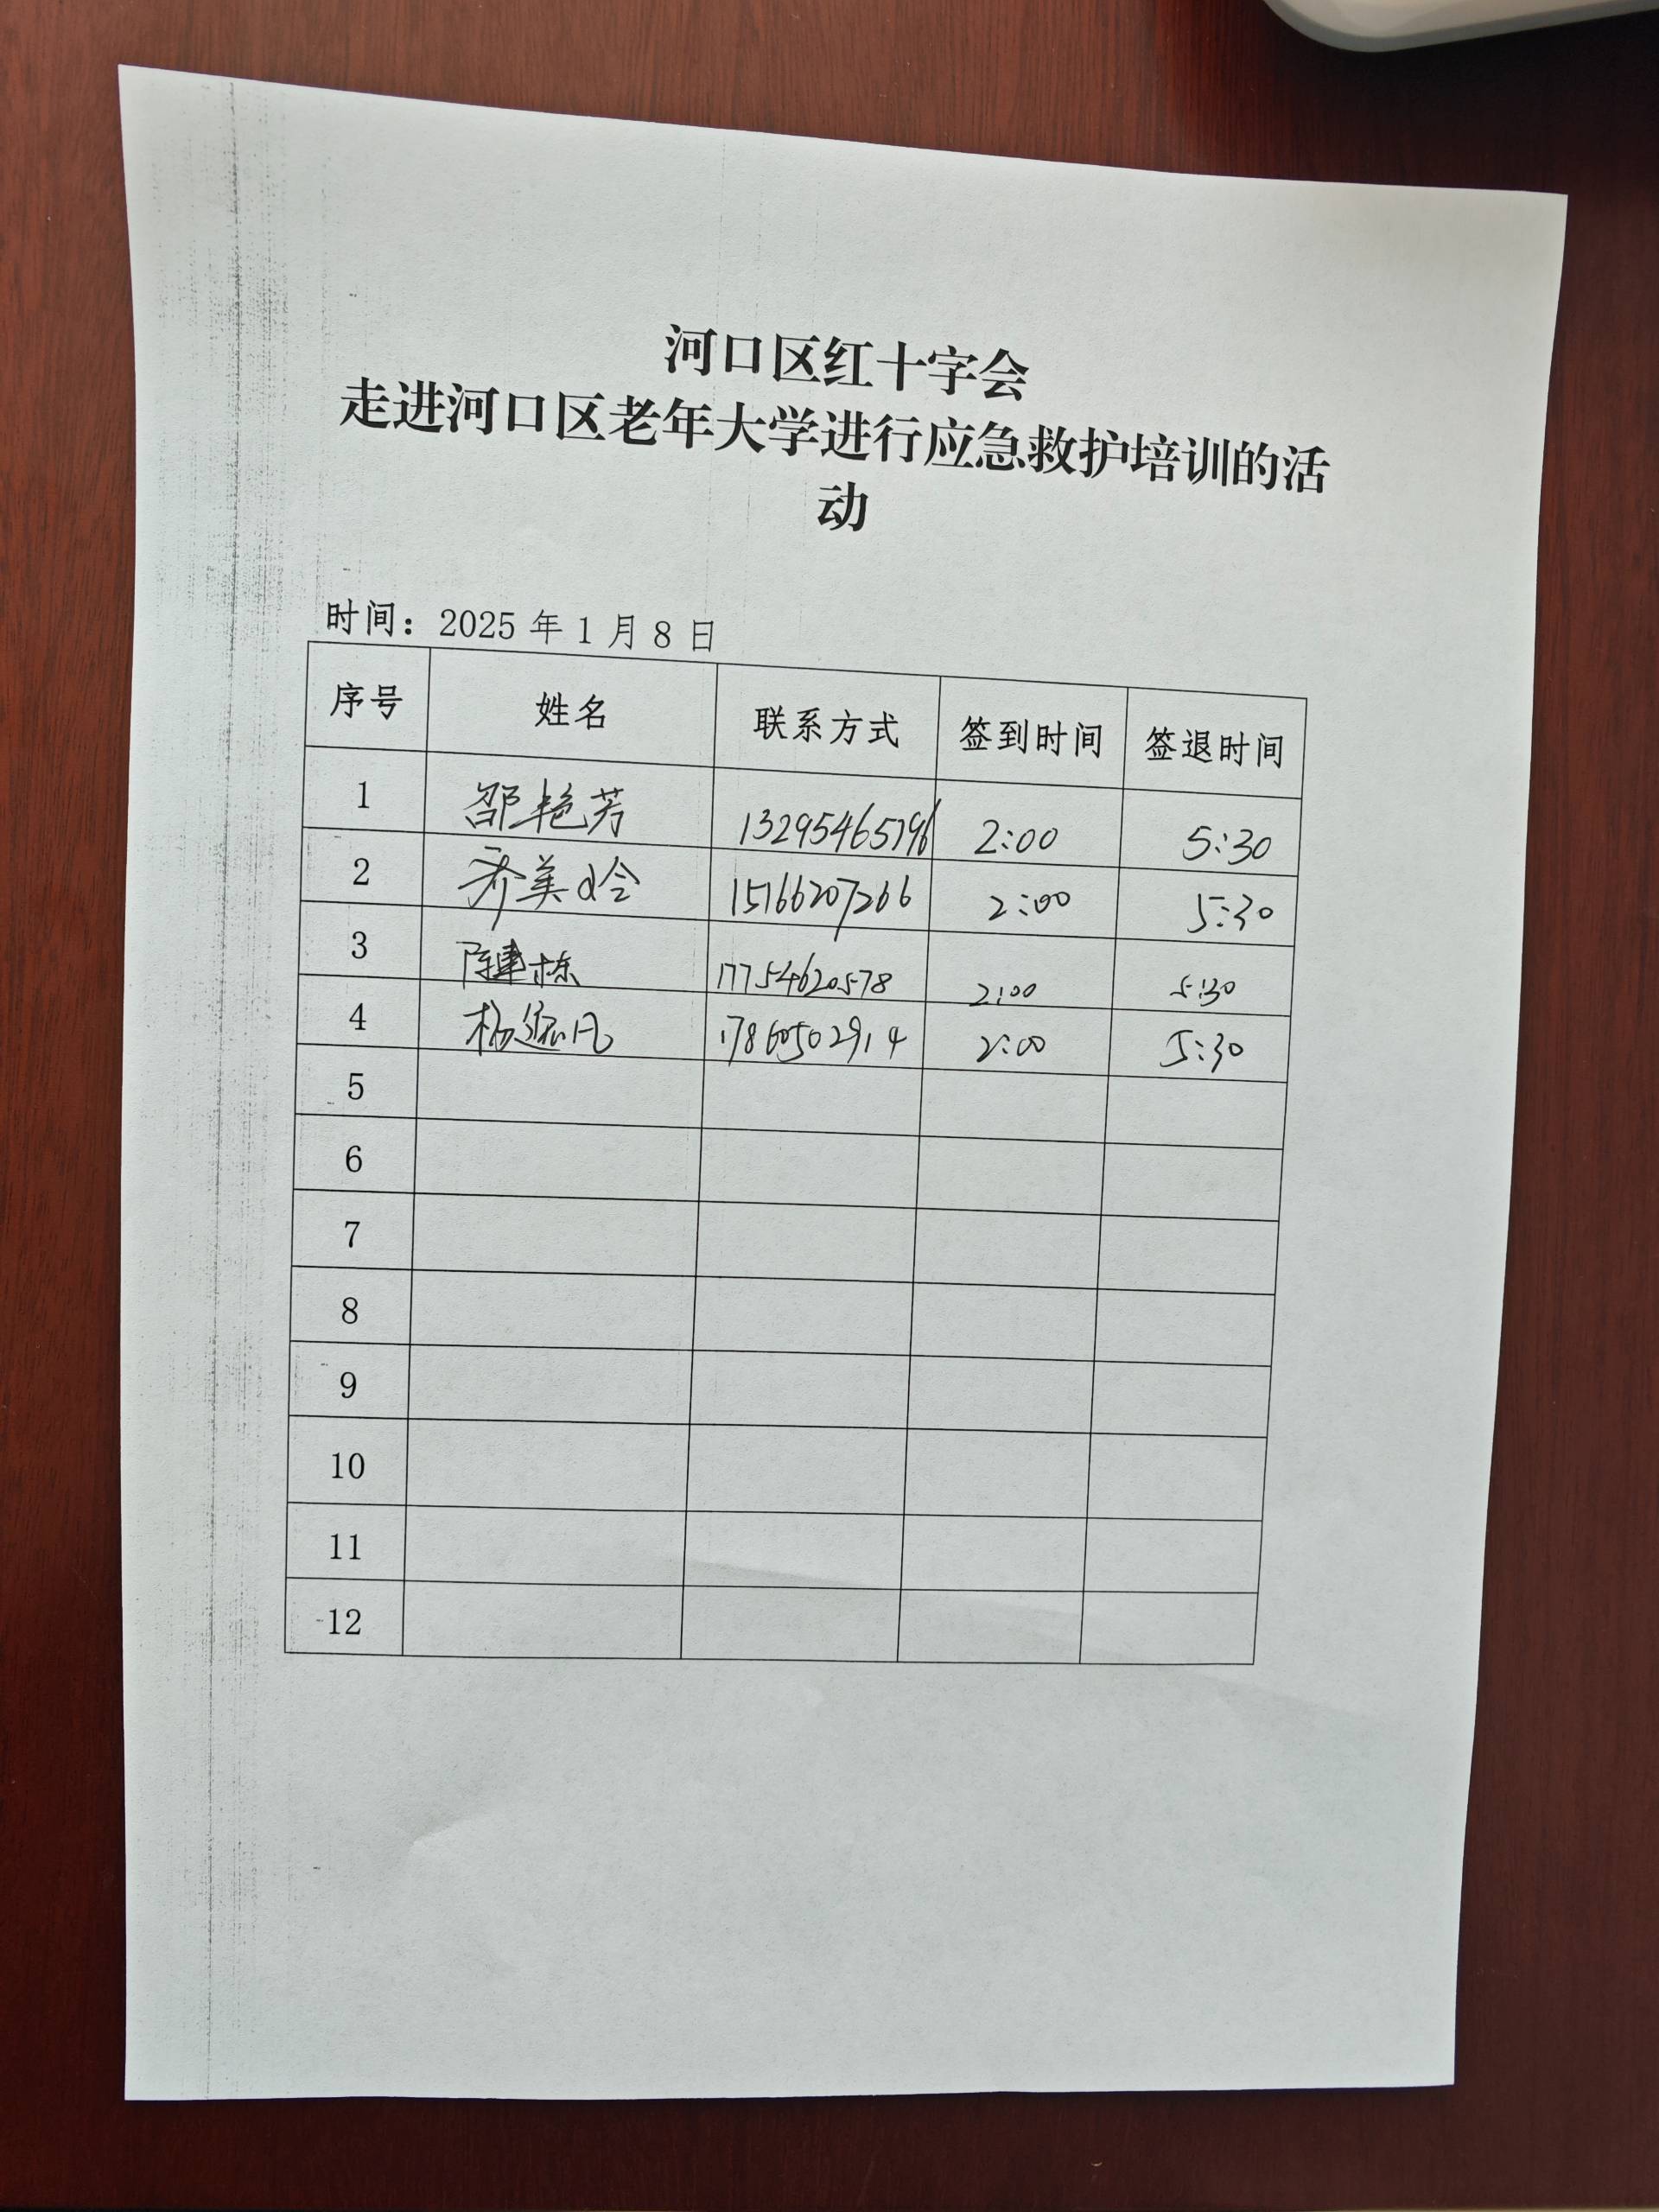 河口区红十字会
走进河口区老年大学进行应急救护培训的活
动
时间：2025 年 1 月 8 日
序号 姓名 联系方式 签到时间 签退时间
1 邵艳芳 13295465796 2:00 5:30
2 乔美岭 15166207266 2:00 5:30
3 陈建栋 17754620578 2:00 5:30
4 杨 17860502914 2:00 5:30
5
6
7
8
9
10
11
12